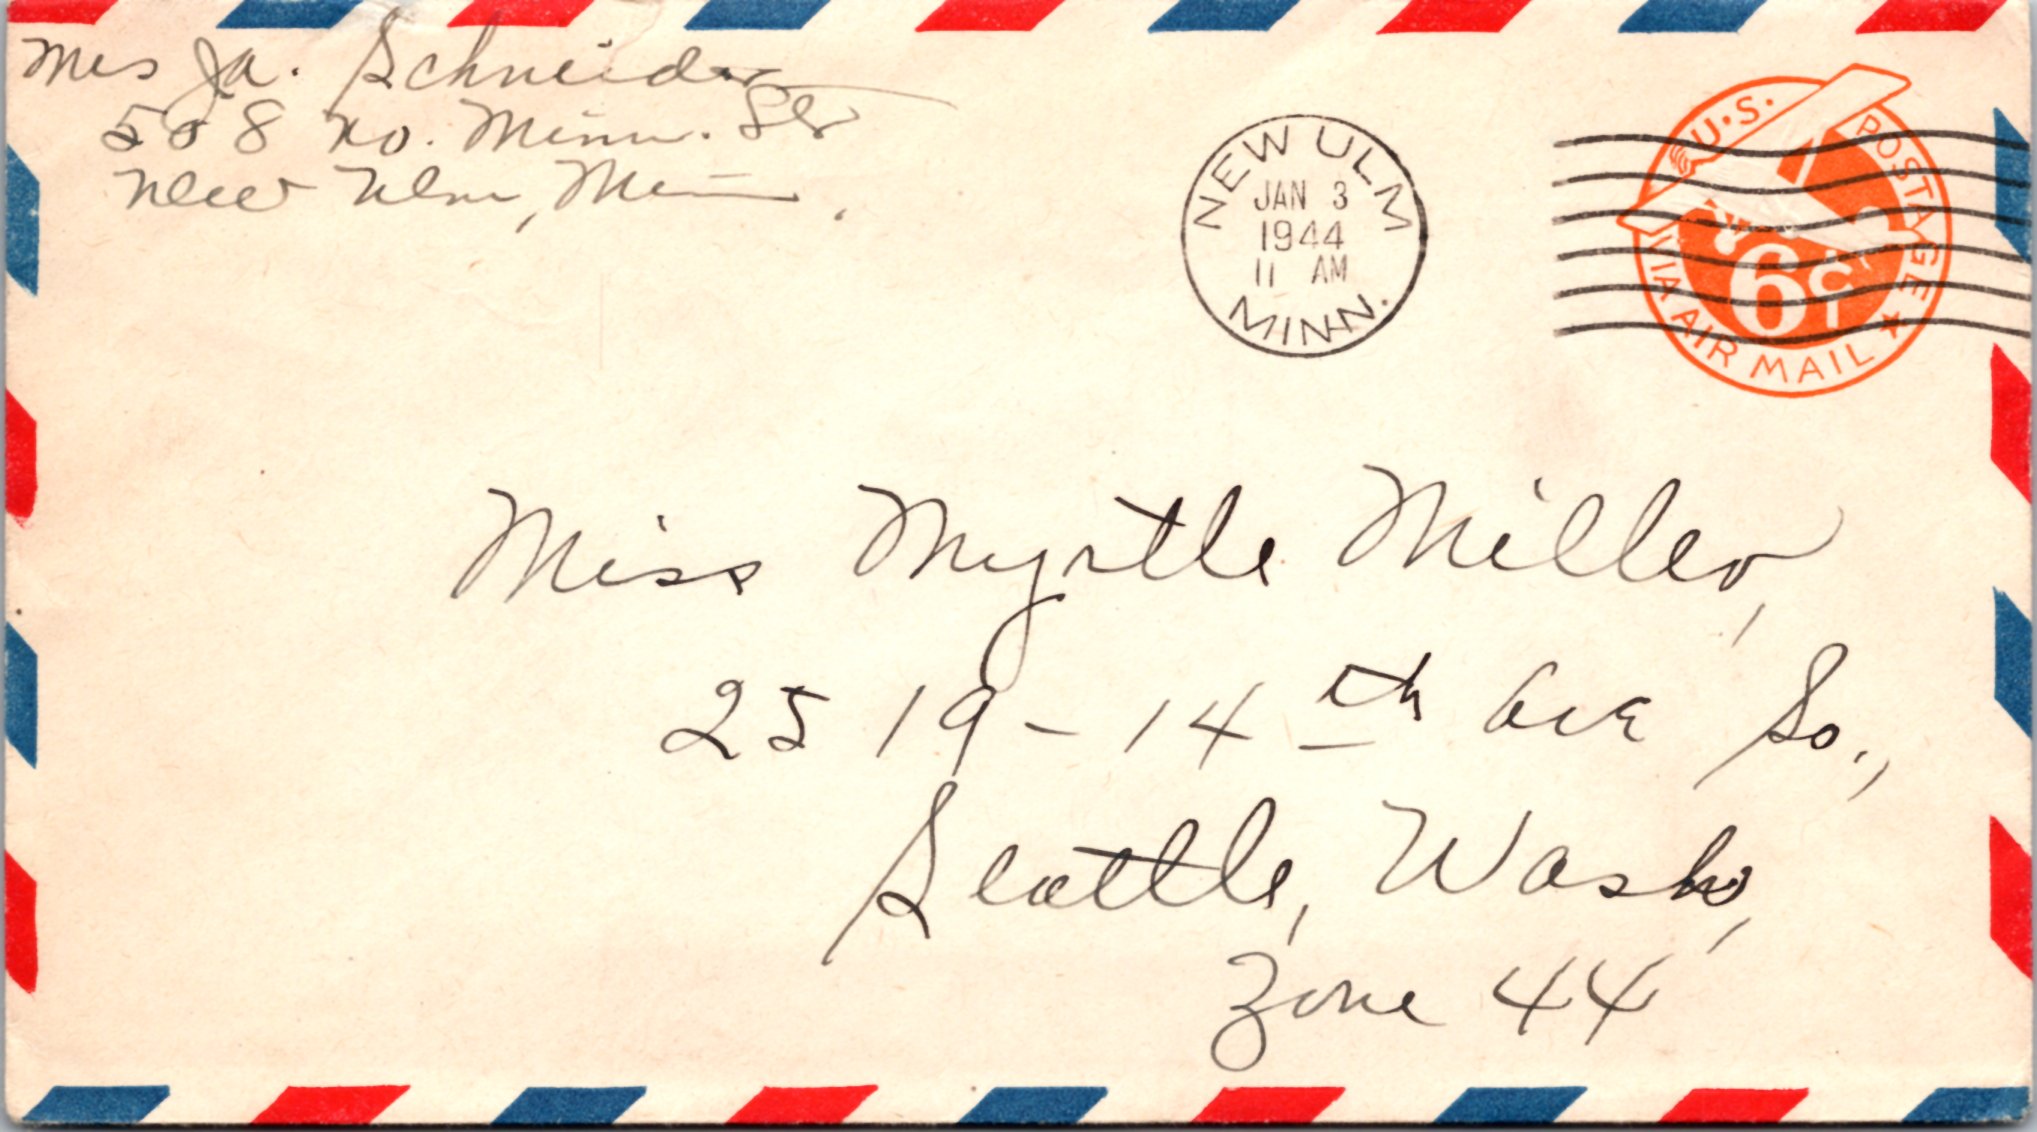 Mrs Ja. Schneider
508 No. Minn. Str
New Ulm, Minn.
NEW ULM
JAN 3
1944
11 AM
MINN.
U.S. POSTAGE
6¢
VIA AIR MAIL
Miss Myrtle Miller,
2519-14th Ave So.,
Seattle, Wash,
Zone 44